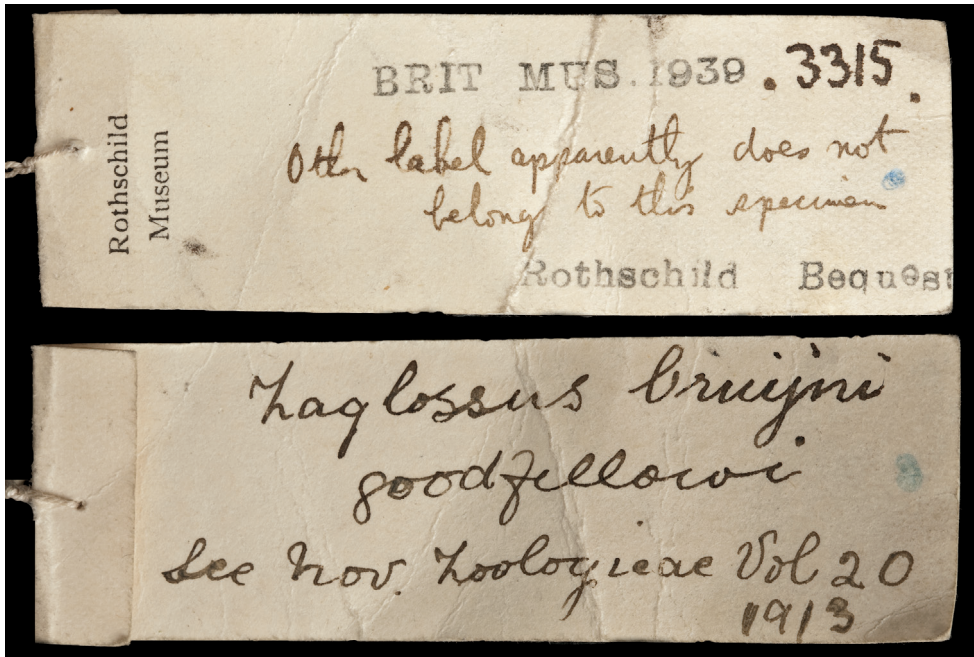 Rothschild
Museum
BRIT MUS. 1939 . 3315 .
Other label apparently does not
belong to this specimen
Rothschild Bequest
Zaglossus bruijni
goodfellowi
See Nov. Zoologicae Vol 20
1913